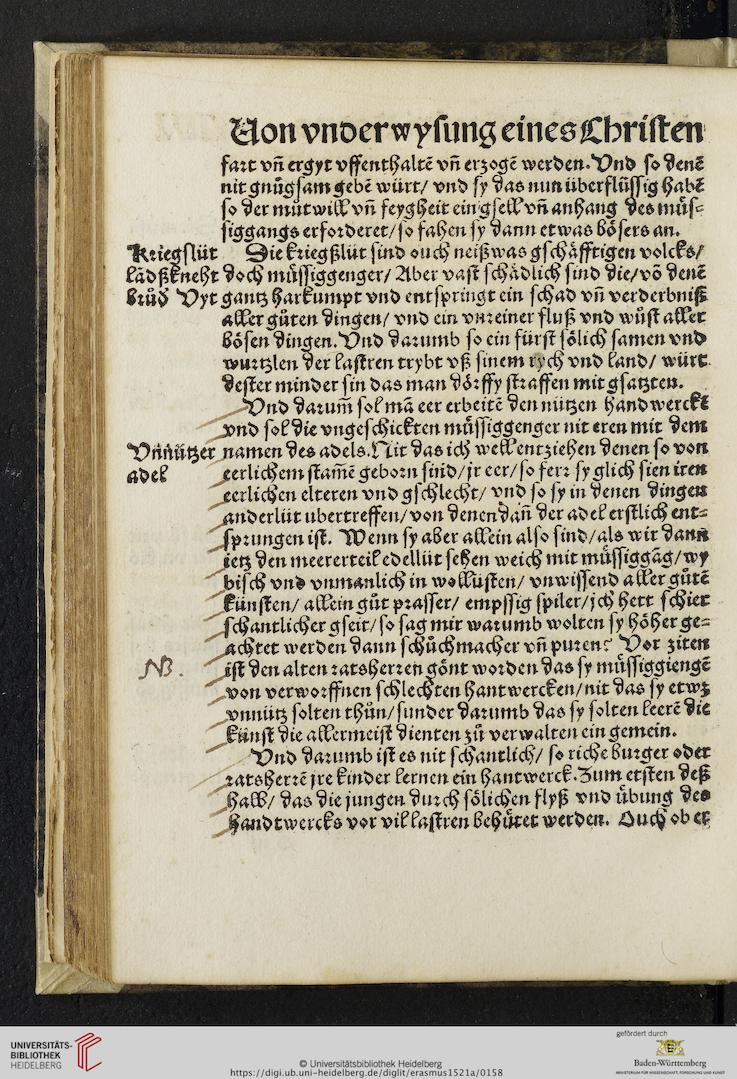 Von vnderwysung eines Christen
fart vñ ergyt vffenthaltẽ vñ erzogẽ werden. Vnd so denẽ
nit gnůgsam gebẽ würt/ vnd sy das nun überflüssig habẽ
so der můtwill vñ feygheit ein gsell vñ anhang des můs⸗
siggangs erforderet/ so fahen sy dann etwas bösers an.
Kriegslüt
Die kriegßlüt sind ouch neißwas gschäfftigen volcks/
lãdßkneht
doch můssiggenger/ Aber vast schädlich sind die/ võ denẽ
brůd Vyt
gantz harkumpt vnd entspringt ein schad vñ verderbniß
aller gůten dingen/ vnd ein vnreiner fluß vnd wůst aller
bösen dingen. Vnd darumb so ein fürst sölich samen vnd
wurtzlen der lastren trybt vß sinem rych vnd land/ würt
dester minder sin das man dörffy straffen mit gsatzten.
Vnd darum̃ sol mã eer erbeitẽ den nützen handwerckẽ
vnd sol die vngeschickten můssiggenger nit eren mit dem
Vnnützer
namen des adels. Nit das ich well entziehen denen so von
adel
eerlichem stam̃ẽ geborn sind/ jr eer/ so ferr sy glich sien iren
eerlichen elteren vnd gschlecht/ vnd so sy in denen dingen
anderlüt ubertreffen/ von denen dañ der adel erstlich ent⸗
sprungen ist. Wenn sy aber allein also sind/ als wir dann
ietz den meererteil edellüt sehen weich mit můssiggãg/ wy
bisch vnd vnmanlich in wollüsten/ vnwissend aller gůtẽ
künsten/ allein gůt prasser/ empssig spiler/ jch hett schier
schantlicher gseit/ so sag mir warumb wolten sy höher ge⸗
achtet werden dann schůchmacher vñ puren? Vor ziten
NB.
ist den alten ratsherren gönt worden das sy můssiggiengẽ
von verworffnen schlechten hantwercken/ nit das sy etwz
vnnütz solten thůn/ sunder darumb das sy solten leerẽ die
künst die allermeist dienten zů verwalten ein gemein.
Vnd darumb ist es nit schantlich/ so riche burger oder
ratsherrẽ jre kinder lernen ein hantwerck. Zum ersten deß
halb/ das die jungen durch sölichen flyß vnd übung des
handtwercks vor vil lastren behütet werden. Ouch ob er
UNIVERSITÄTS-
BIBLIOTHEK
HEIDELBERG
© Universitätsbibliothek Heidelberg
https://digi.ub.uni-heidelberg.de/diglit/erasmus1521a/0158
gefördert durch
Baden-Württemberg
MINISTERIUM FÜR WISSENSCHAFT, FORSCHUNG UND KUNST